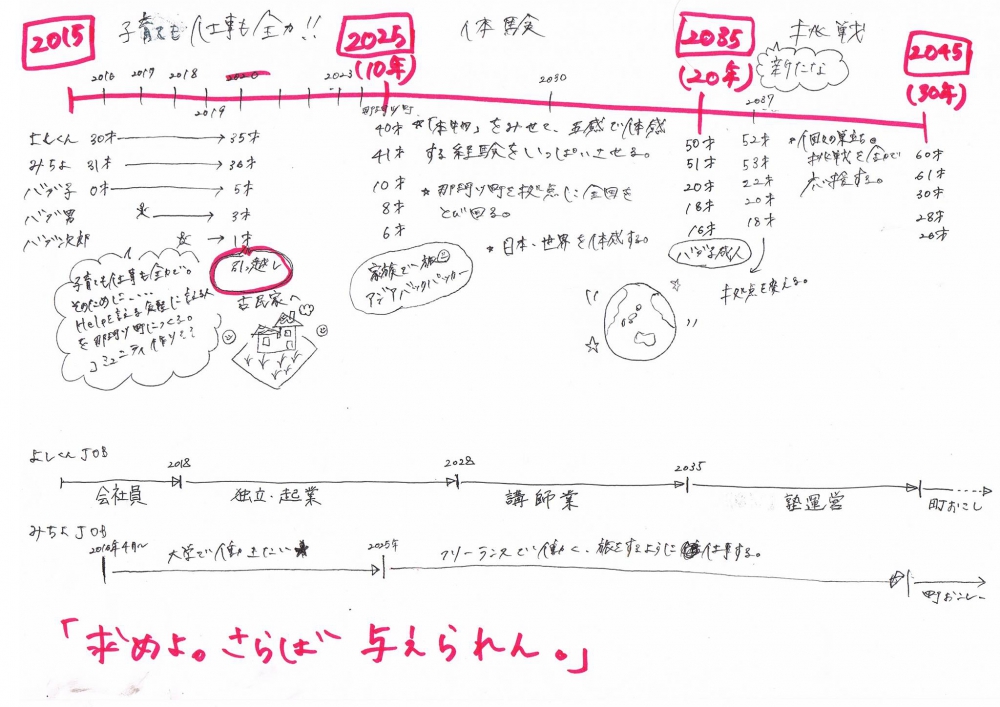 2015
子育ても仕事も全力!!
2025
(10年)
体験
2035
(20年)
新たな
挑戦
2045
(30年)
2016 2017 2018 2019 2020 2023 那珂川町 2030 2037
よしくん 30才 → 35才 40才 50才 52才 60才
みちよ 31才 → 36才 41才 51才 53才 61才
バブ子 0才 → 5才 10才 20才 22才 30才
バブ男 → 3才 8才 18才 20才 28才
バブ次郎 → 1才 6才 16才 18才 26才
★「本物」をみせて、五感で体感
する経験をいっぱいさせる。
★那珂川町を拠点に全国を
とび回る。
★日本、世界を体感する。
★個々の巣立ち。
挑戦を全力で
応援する。
子育ても仕事も全力で。
そのために……
Helpを言える気軽に言える人
を那珂川町につくる。
コミュニティ作り??
引っ越し
古民家へ
家族で旅
アジアバックパッカー
バブ子成人
拠点を変える。
よしくんJOB
2018 2028 2035
会社員 独立・起業 講師業 塾運営 町おこし
みちよJOB
2016年4月~ 2025年
大学で働きたい★ フリーランスで働く、旅をするように仕事する。
町おこし
「求めよ。さらば 与えられん。」